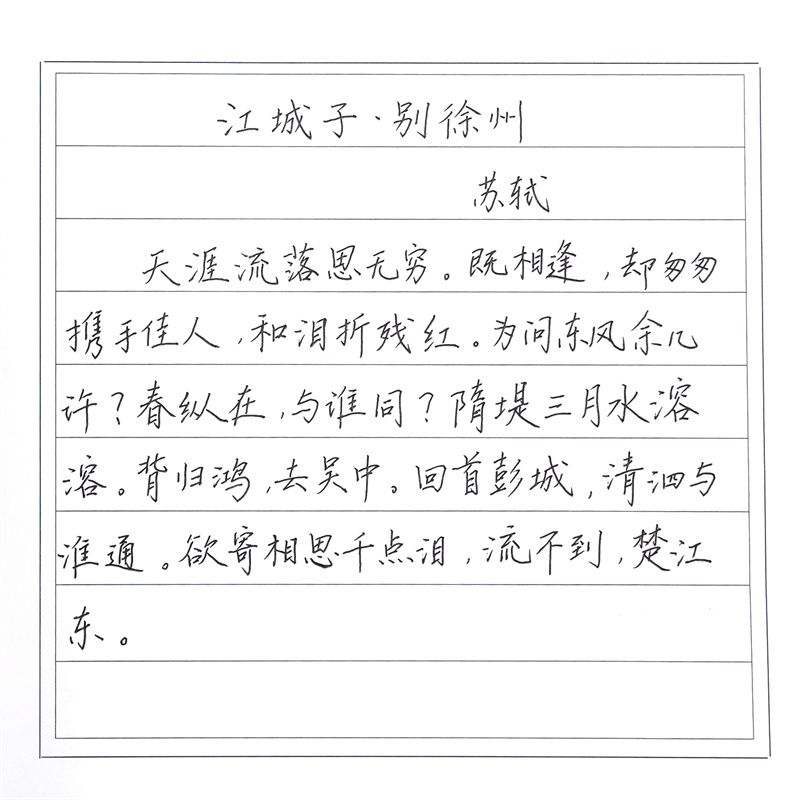 江城子·别徐州
苏轼
天涯流落思无穷。既相逢，却匆匆
携手佳人，和泪折残红。为问东风余几
许？春纵在，与谁同？隋堤三月水溶
溶。背归鸿，去吴中。回首彭城，清泗与
淮通。欲寄相思千点泪，流不到，楚江
东。